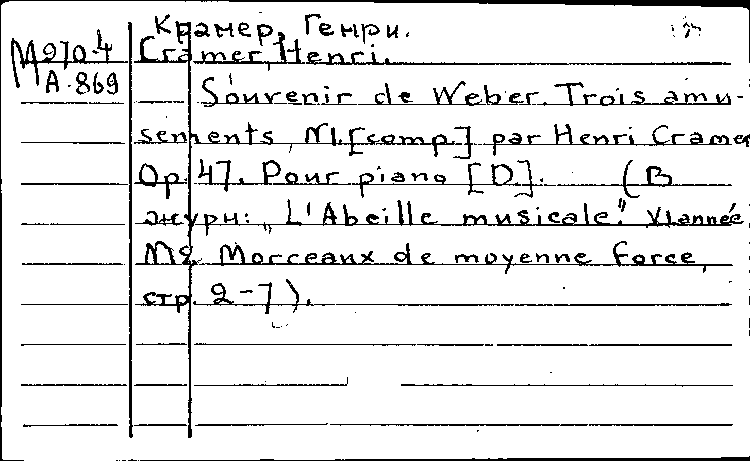 Крамер, Генри.
М970.4 Cramer, Henri.
А.869
Souvenir de Weber. Trois amu-
sements, N1.[comp.] par Henri Cramer
Op. 47. Pour piano [D.]. (В
журн: „L'Abeille musicale." VI année
№2 Morceaux de moyenne force,
стр. 2-7).